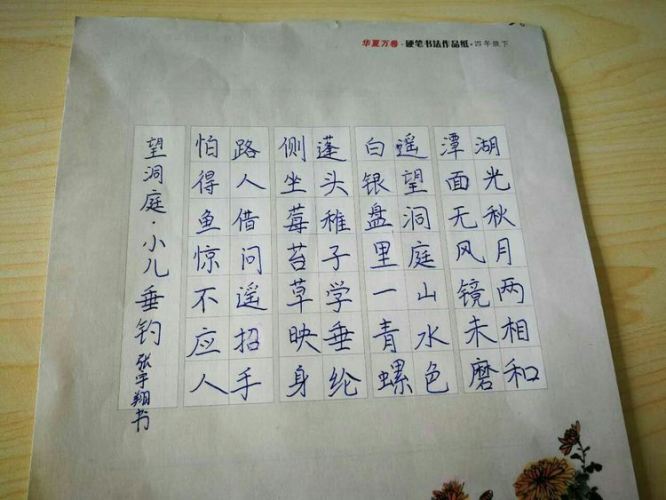 华夏万卷·硬笔书法作品纸·四年级下
湖光秋月两相和
潭面无风镜未磨
遥望洞庭山水色
白银盘里一青螺
蓬头稚子学垂纶
侧坐莓苔草映身
路人借问遥招手
怕得鱼惊不应人
望洞庭·小儿垂钓 张宇翔书